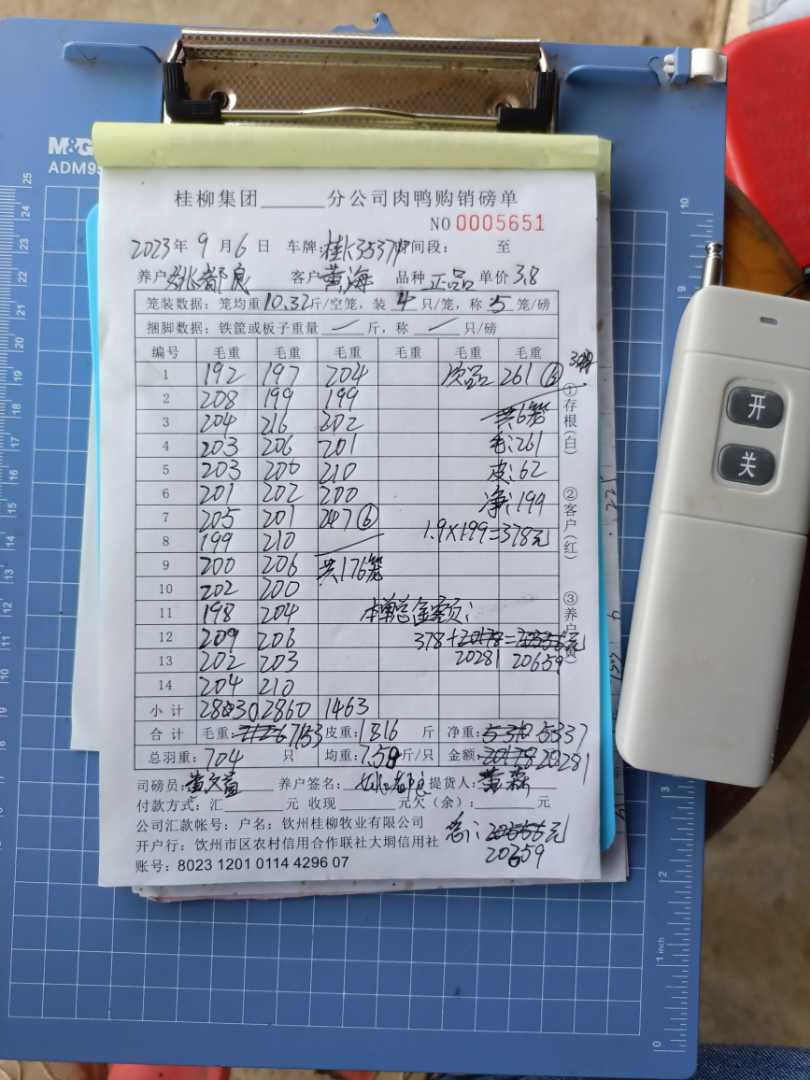 M&G
ADM95
桂柳集团______分公司肉鸭购销磅单
NO 0005651
2023年 9 月 6 日 车牌:桂K3537 时间段: 至
养户: 都良 客户 黄海 品种 正品 单价 3.8
笼装数据: 笼均重 10.32 斤/空笼, 装 4 只/笼, 称 5 笼/磅
捆脚数据: 铁筐或板子重量 / 斤, 称 / 只/磅
编号 毛重 毛重 毛重 毛重 毛重 毛重
1 192 197 204 次品 261 ⑥
2 208 199 199
3 204 216 202 共6笼
4 203 206 201 毛:261
5 203 200 210 皮:62
6 201 202 200 净:199
7 205 201 247 ⑥ 1.9×199=378元
8 199 210
9 200 206 共176笼
10 202 200
11 198 204 本单总金额:
12 209 206 378+20178=元
13 202 203 20281 20659
14 204 210
小计 2830 2860 1463
合计 毛重: 7153 皮重: 1816 斤 净重: 5337
总羽重: 704 只 均重: 7.58 斤/只 金额: 20281
司磅员: 养户签名: 都良 提货人: 黄
付款方式: 汇______元 收现______元欠(余):______元
公司汇款帐号: 户名: 钦州桂柳牧业有限公司
开户行: 钦州市区农村信用合作联社大垌信用社
总: 元
20659
账号: 8023 1201 0114 4296 07
①存根(白) ②客户(红) ③养户(黄)
开
关